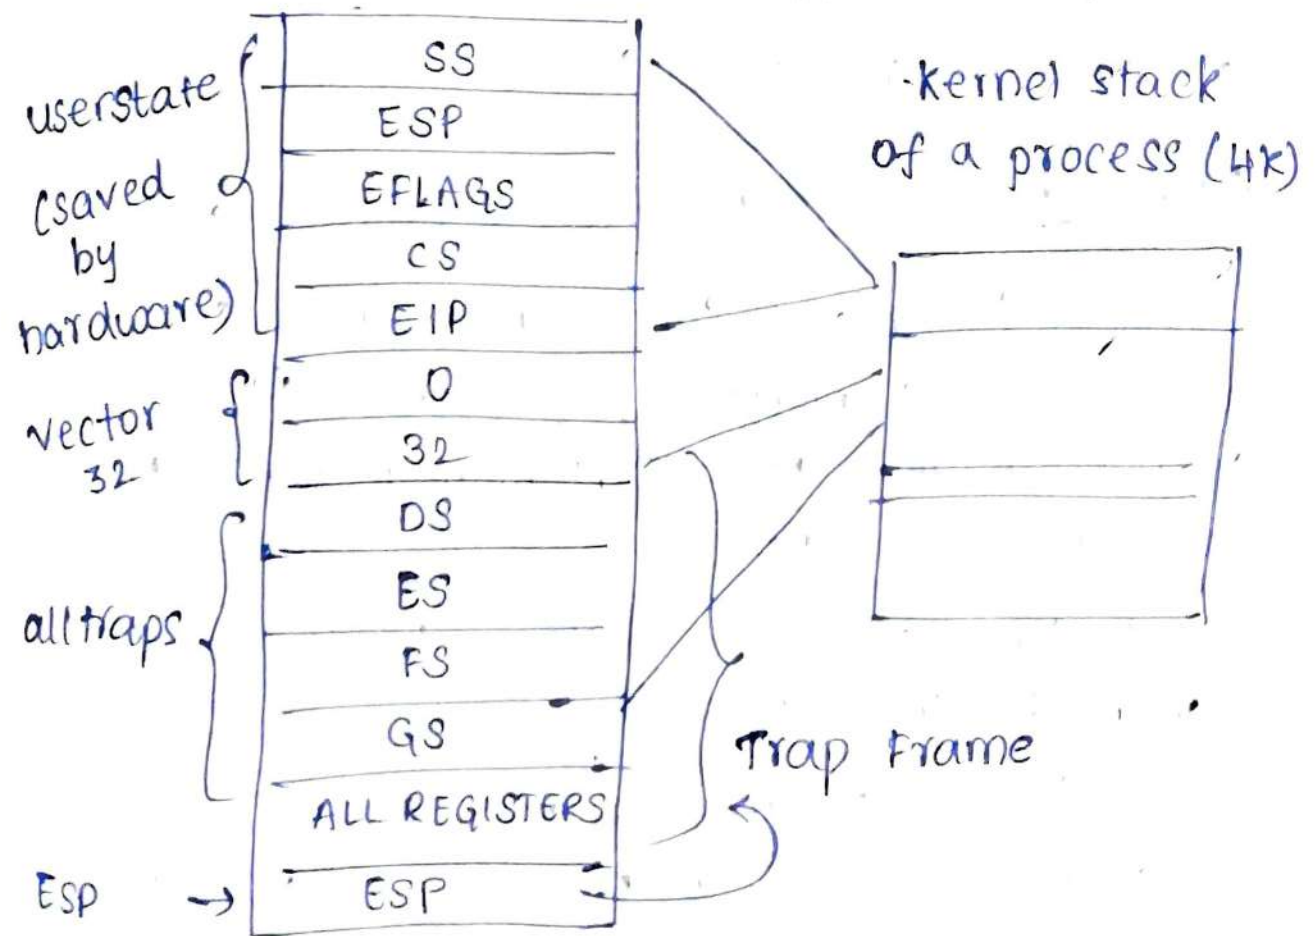 userstate
(saved
by
hardware)
vector
32
alltraps
Esp
SS
ESP
EFLAGS
CS
EIP
0
32
DS
ES
FS
GS
ALL REGISTERS
ESP
Kernel stack
of a process (4K)
Trap Frame